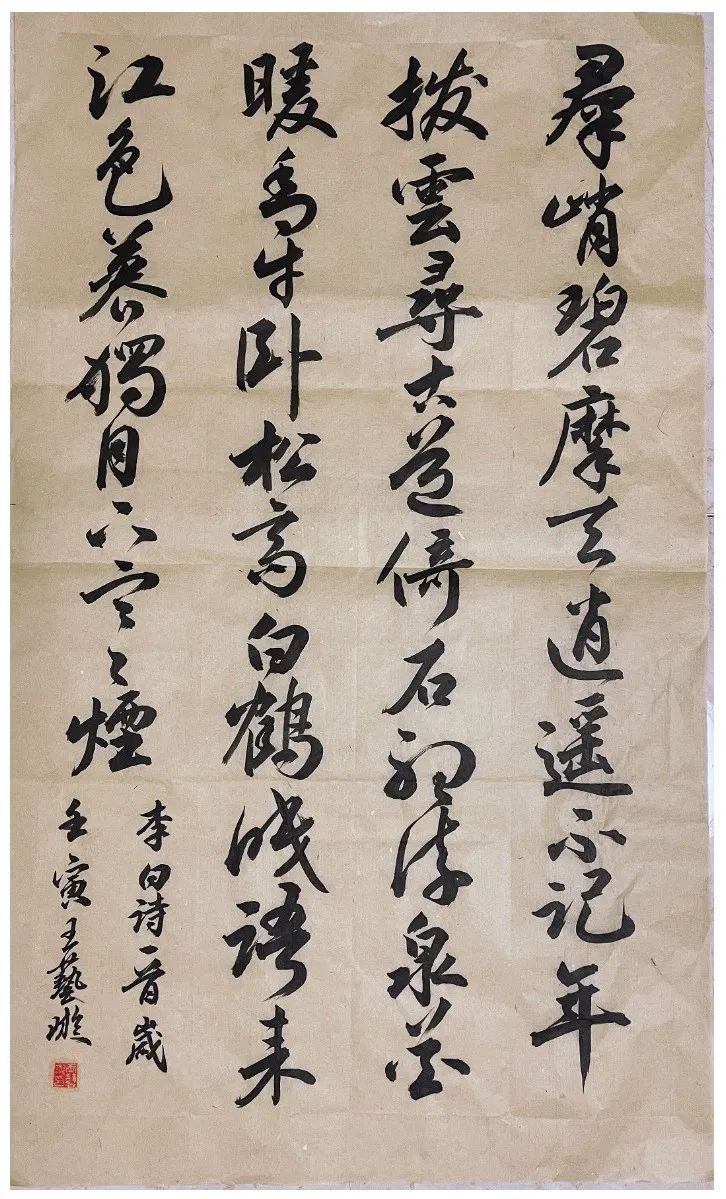 羣峭碧摩天逍遥不記年
撥雲尋古道倚石聽流泉花
暖青牛卧松高白鶴眠語来
江色暮獨自下寒煙
李白詩一首歲
壬寅王藝璇